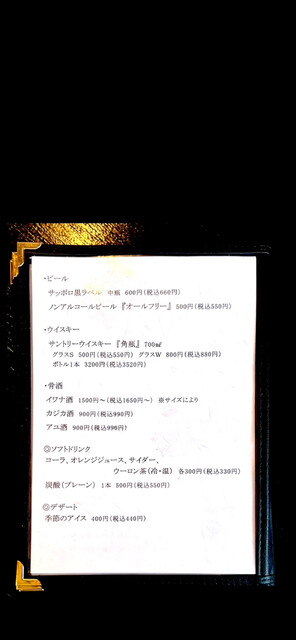 ・ビール
サッポロ黒ラベル 中瓶 600円(税込660円)
ノンアルコールビール『オールフリー』500円(税込550円)
・ウイスキー
サントリーウイスキー『角瓶』700㎖
グラスS 500円(税込550円) グラスW 800円(税込880円)
ボトル1本 3200円(税込3520円)
・骨酒
イワナ酒 1500円〜(税込1650円〜) ※サイズにより
カジカ酒 900円(税込990円)
アユ酒 900円(税込990円)
◎ソフトドリンク
コーラ、オレンジジュース、サイダー、
ウーロン茶(冷・温) 各300円(税込330円)
炭酸(プレーン) 1本 500円(税込550円)
◎デザート
季節のアイス 400円(税込440円)